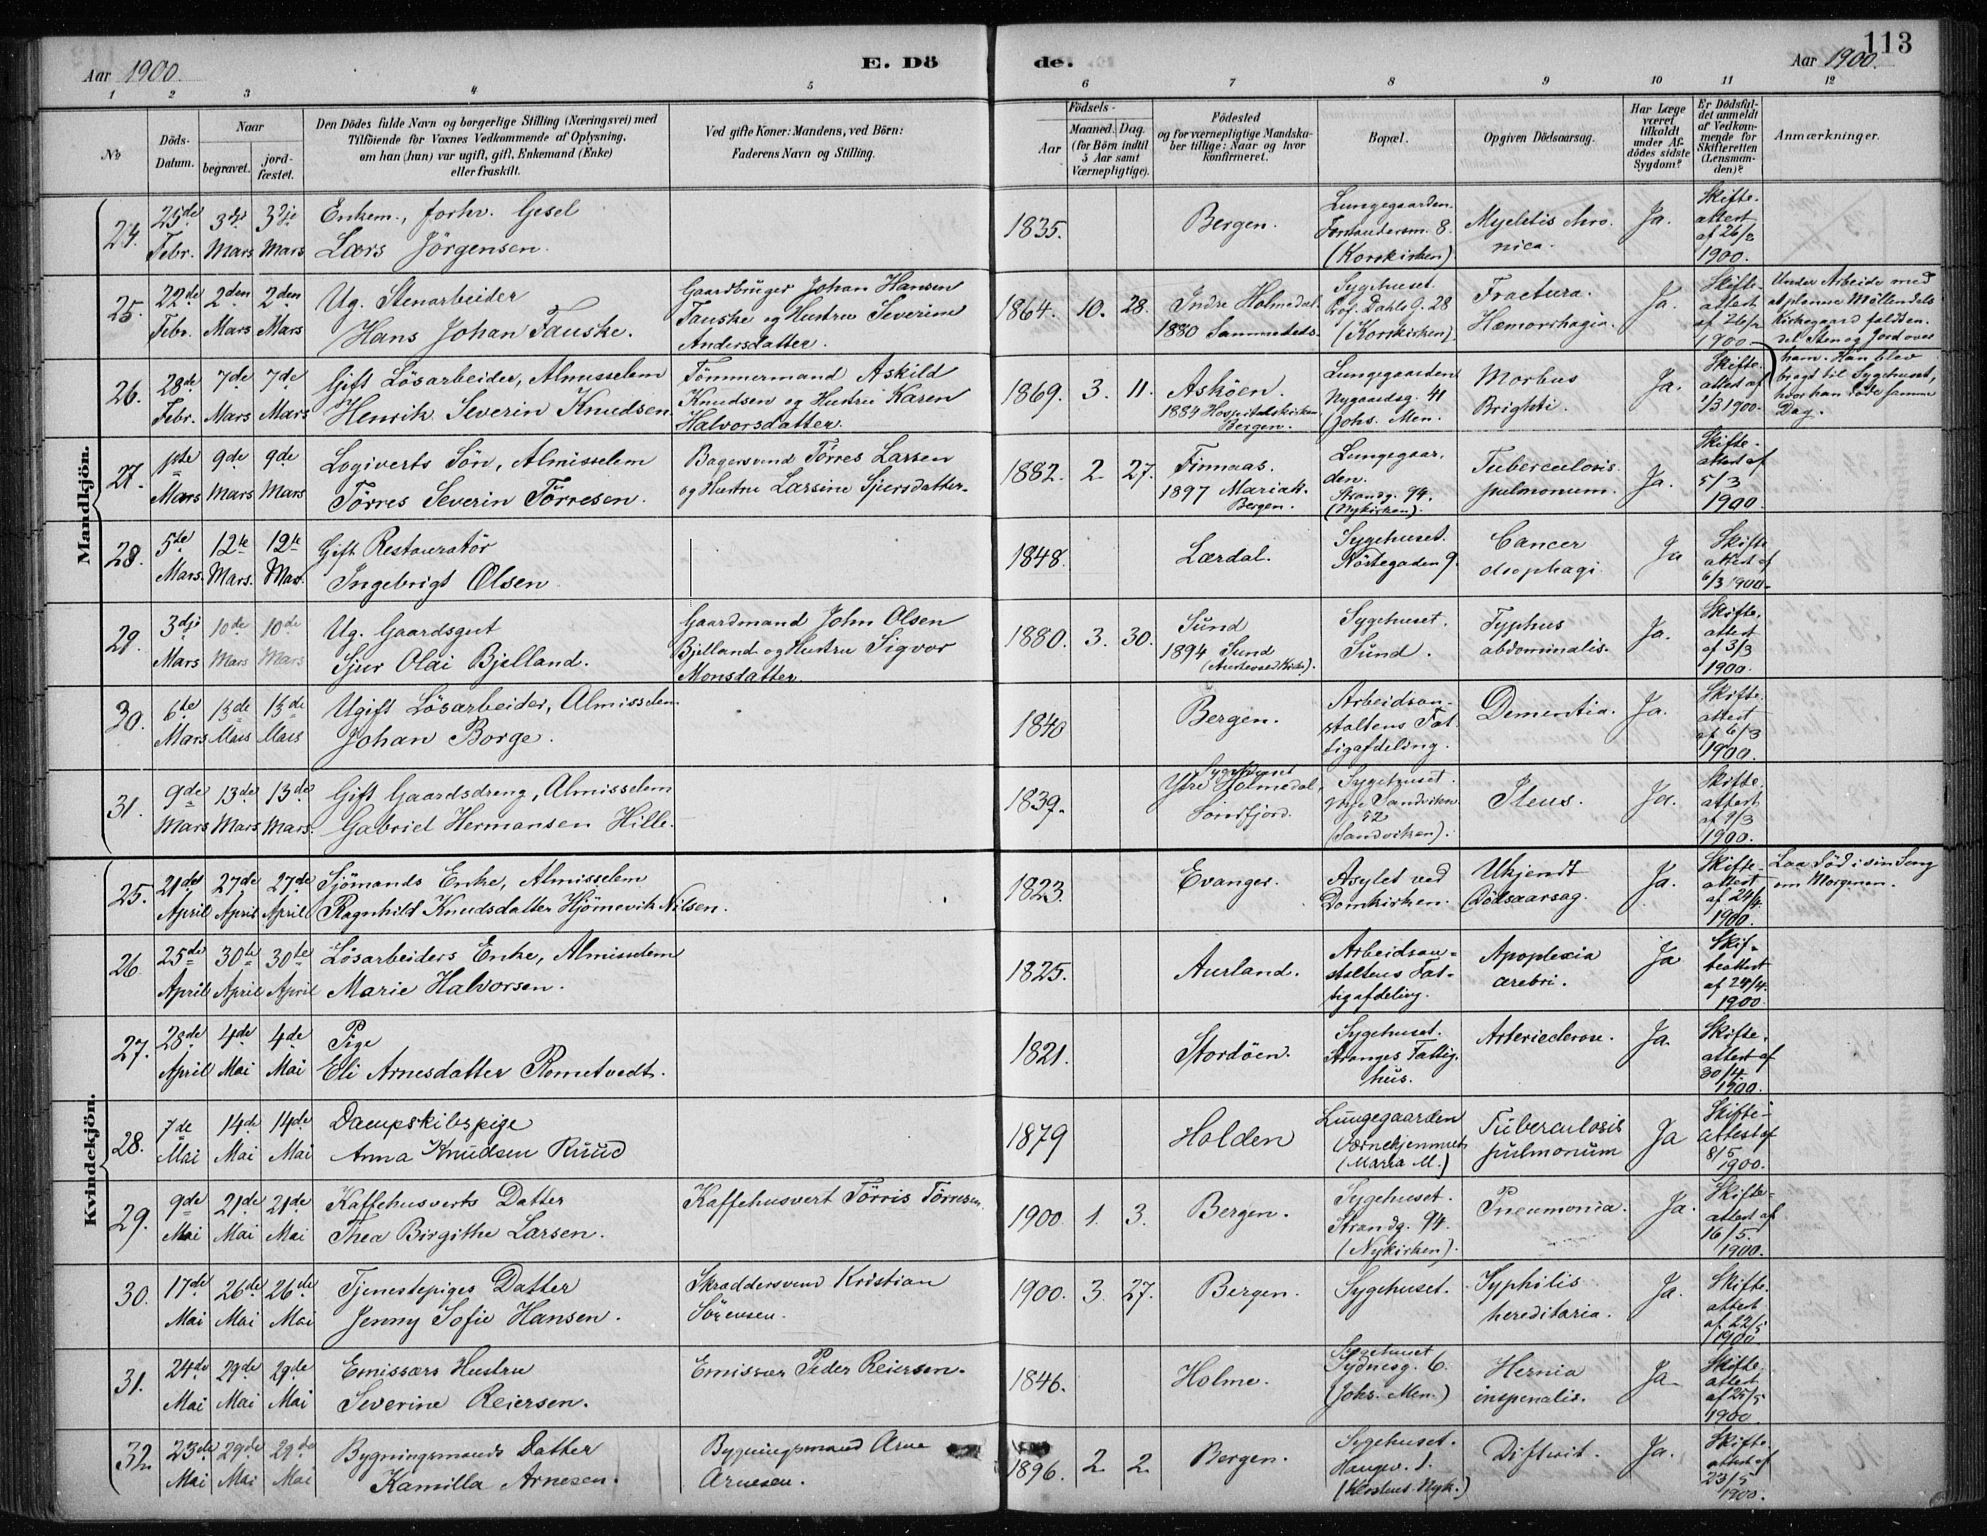 113
Aar 1900.
E. Dö
de.
Aar 1900.
1 2 3 4 5 6 7 8 9 10 11 12
No
Döds-Datum.
Naar
begravet.
jord-fæstet.
Den Dödes fulde Navn og borgerlige Stilling (Næringsvei) med
Tilföiende for Voxnes Vedkommende af Oplysning,
om han (hun) var ugift, gift, Enkemand (Enke)
eller fraskilt.
Ved gifte Koner: Mandens, ved Börn:
Faderens Navn og Stilling.
Födsels-
Aar
Maaned. Dag.
(for Börn indtil
5 Aar samt
Værnepligtige).
Födested
og for værnepligtige Mandska-
ber tillige: Naar og hvor
konfirmeret.
Bopæl.
Opgiven Dödsaarsag.
Har Læge
været
tilkaldt
under Af-
dödes sidste
Sygdom?
Er Dödsfal-
det anmeldt
af Vedkom-
mende for
Skifteretten
(Lensman-
den)?
Anmærkninger.
Mandkjön.
24. 25de Febr. 3dje Mars 3dje Mars
Enkem., forhv. Gesel
Lars Jörgensen.
1835.
Bergen.
Lungegaarden.
8.
(Korskirken)
Myelitis chro-
nica.
Ja.
Skifte-
attest
af 26/2
1900.
25. 22de Febr. 2den Mars 2den Mars
Ug. Stenarbeider
Hans Johan Fauske.
Gaardbruger Johan Hansen
Fauske og Hustru Severine
Andersdatter.
1864. 10. 28.
Indre Holmedal.
1880 Sammesteds.
Sygehuset.
Prof. Dahls G. 28
(Korskirken)
Fractura.
Hæmorrhagia.
Ja.
Skifte-
attest
af 26/2
1900.
Under Arbeide med
at planere Möllendals
Kirkegaard faldt en
Del Sten og Jord over
ham. Han blev
bragt til Sygehuset,
hvor han döde samme
Dag.
26. 28de Febr. 7de Mars 7de Mars
Gift Lösarbeider, Almisselem
Henrik Severin Knudsen.
Tömmermand Askild
Knudsen og Hustru Karen
Halvorsdatter.
1869. 3. 11.
Asköen.
1884 Hospitalskirken
Bergen.
Lungegaarden
Nygaardsg. 41
(Johs. Men.
Morbus
Brightii.
Ja.
Skifte-
attest af
1/3 1900.
27. 1ste Mars 9de Mars 9de Mars
Logiverts Sön, Almisselem
Törres Severin Törresen.
Bagersvend Törres Larsen
og Hustru Larsine Sjursdatter.
1882. 2. 27.
Finnaas.
1897 Mariak.
Bergen.
Lungegaar-
den.
Strandg. 94.
(Nykirken).
Tuberculosis
pulmonum.
Ja.
Skifte-
attest af
5/3
1900.
28. 5te Mars. 12te Mars. 12te Mars.
Gift Restauratör
Ingebrigt Olsen.
1848.
Lærdal.
Sygehuset.
Nöstegaden 9.
Cancer
oisophagi.
Ja
Skifte
attest af
6/3 1900.
29. 3dje Mars 10de Mars 10de Mars
Ug. Gaardsgut
Sjur Olai Bjelland.
Gaardmand John Olsen
Bjelland og Hustru Sigvor
Monsdatter.
1880. 3. 30.
Sund
1894 Sund
Sygehuset.
Sund.
Typhus
abdominalis.
Ja.
Skifte-
attest
af 3/3
1900.
30. 6te Mars 13de Mars 13de Mars
Ugift Lösarbeider, Almisselem
Johan Borge.
1840
Bergen.
Arbeidsan-
staltens Fat-
tigafdeling.
Dementia.
Ja.
Skifte-
attest
af 6/3
1900.
31. 9de Mars 13de Mars 13de Mars.
Gift Gaardsdreng, Almisselem
Gabriel Hermansen Hille.
1839.
Ytre Holmedal,
Söndfjord.
Sygehuset.
Nye Sandviken
52
(Sandviken).
Ileus.
Ja.
Skifte-
attest
af 9/3
1900.
Kvindekjön.
25. 21de April 27de April 27de April
Sjömands Enke, Almisselem
Ragnhild Knudsdatter Hjömevik Nilsen.
1823.
Evanger.
Asylet ved
Domkirken.
Ukjendt
Dödsaarsag.
Ja.
Skifte-
attest
af 24/4.
1900.
Laa död i sin Seng
om Morgenen.
26. 25de April 30te April 30te April
Lösarbeiders Enke, Almisselem
Marie Halvorsen.
1825.
Aurland.
Arbeidsan-
staltens Fat-
tigafdeling.
Apoplexia
cerebri.
Ja
Skif-
teattest
af 27/4.
1900.
27. 28de April 4de Mai 4de Mai
Pige
Eli Arnesdatter Rometvedt.
1821.
Stordöen.
Sygehuset.
Stranges Fattig-
hus.
Arteriesclerose.
Ja.
Skifte-
attest af
30/4.
1900.
28. 7de Mai 14de Mai 14de Mai
Dampskibspige
Anna Knudsen Ruud
1879
Holden
Lungegaarden
Værnehjemmet
(Maria M.)
Tuberculosis
pulmonum
Ja
Skifte-
attest af
8/5
1900.
29. 9de Mai 21de Mai 21de Mai
Kaffehusverts Datter
Thea Birgithe Larsen.
Kaffehusvert Törris Törresen.
1900 1. 3.
Bergen.
Sygehuset.
Strandg. 94.
(Nykirken).
Pneumonia.
Ja.
Skifte-
attest af
16/5.
1900.
30. 17de Mai 26de Mai 26de Mai
Tjenestepiges Datter
Jenny Sofie Hansen.
Skræddersvend Kristian
Sörensen.
1900. 3. 27.
Bergen.
Sygehuset.
Syphilis
hereditaria.
Ja.
Skifte-
attest
af 22/5
1900
31. 24de Mai 29de Mai 29de Mai
Emissærs Hustru
Severine Reiersen.
Emissær Peder Reiersen.
1846.
Holme.
Sygehuset
Sydnesg. 6.
(Johs. Men.)
Hernia
Ja
Skifte-
attest
af 25/5
1900
32. 23de Mai 29de Mai 29de Mai
Bygningsmands Datter
Kamilla Arnesen.
Bygningsmand Arne
Arnesen.
1896. 2. 2.
Bergen.
Sygehuset.
Difterit.
Ja.
Skifte-
attest af
23/5
1900.